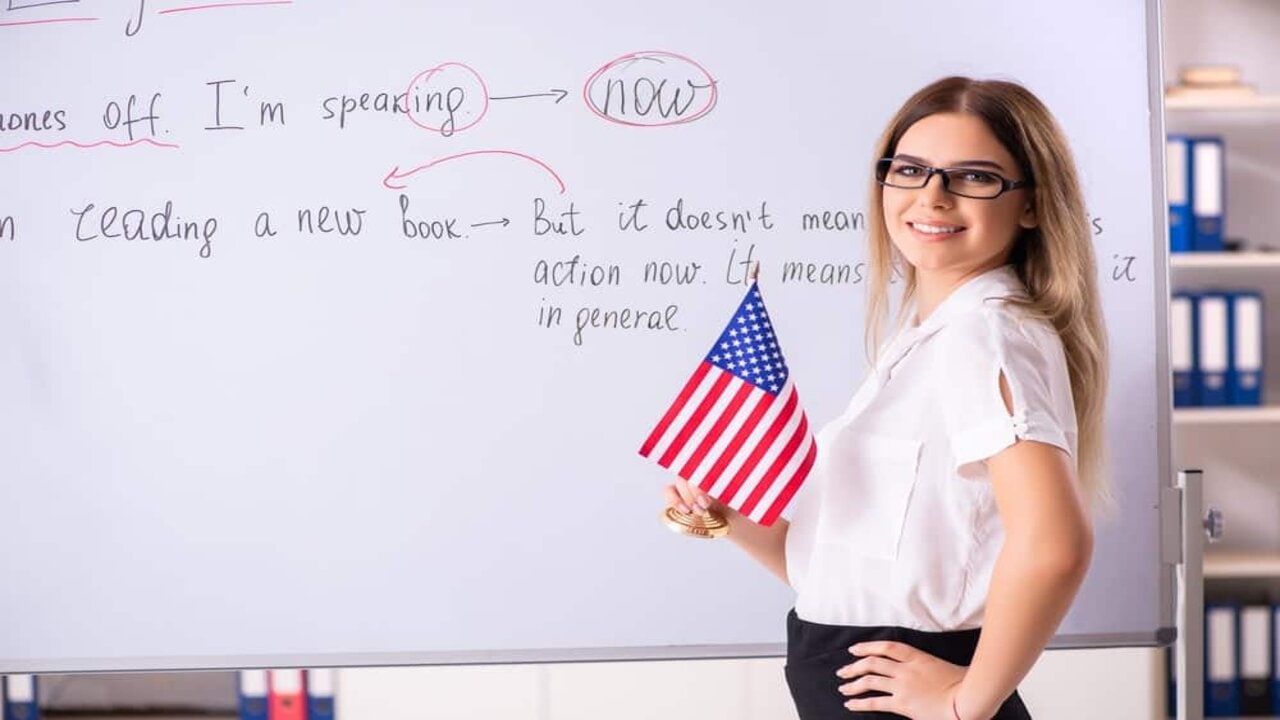 off. I'm speaking. → now
reading a new book. → But it doesn't mean
action now. It means it
in general.